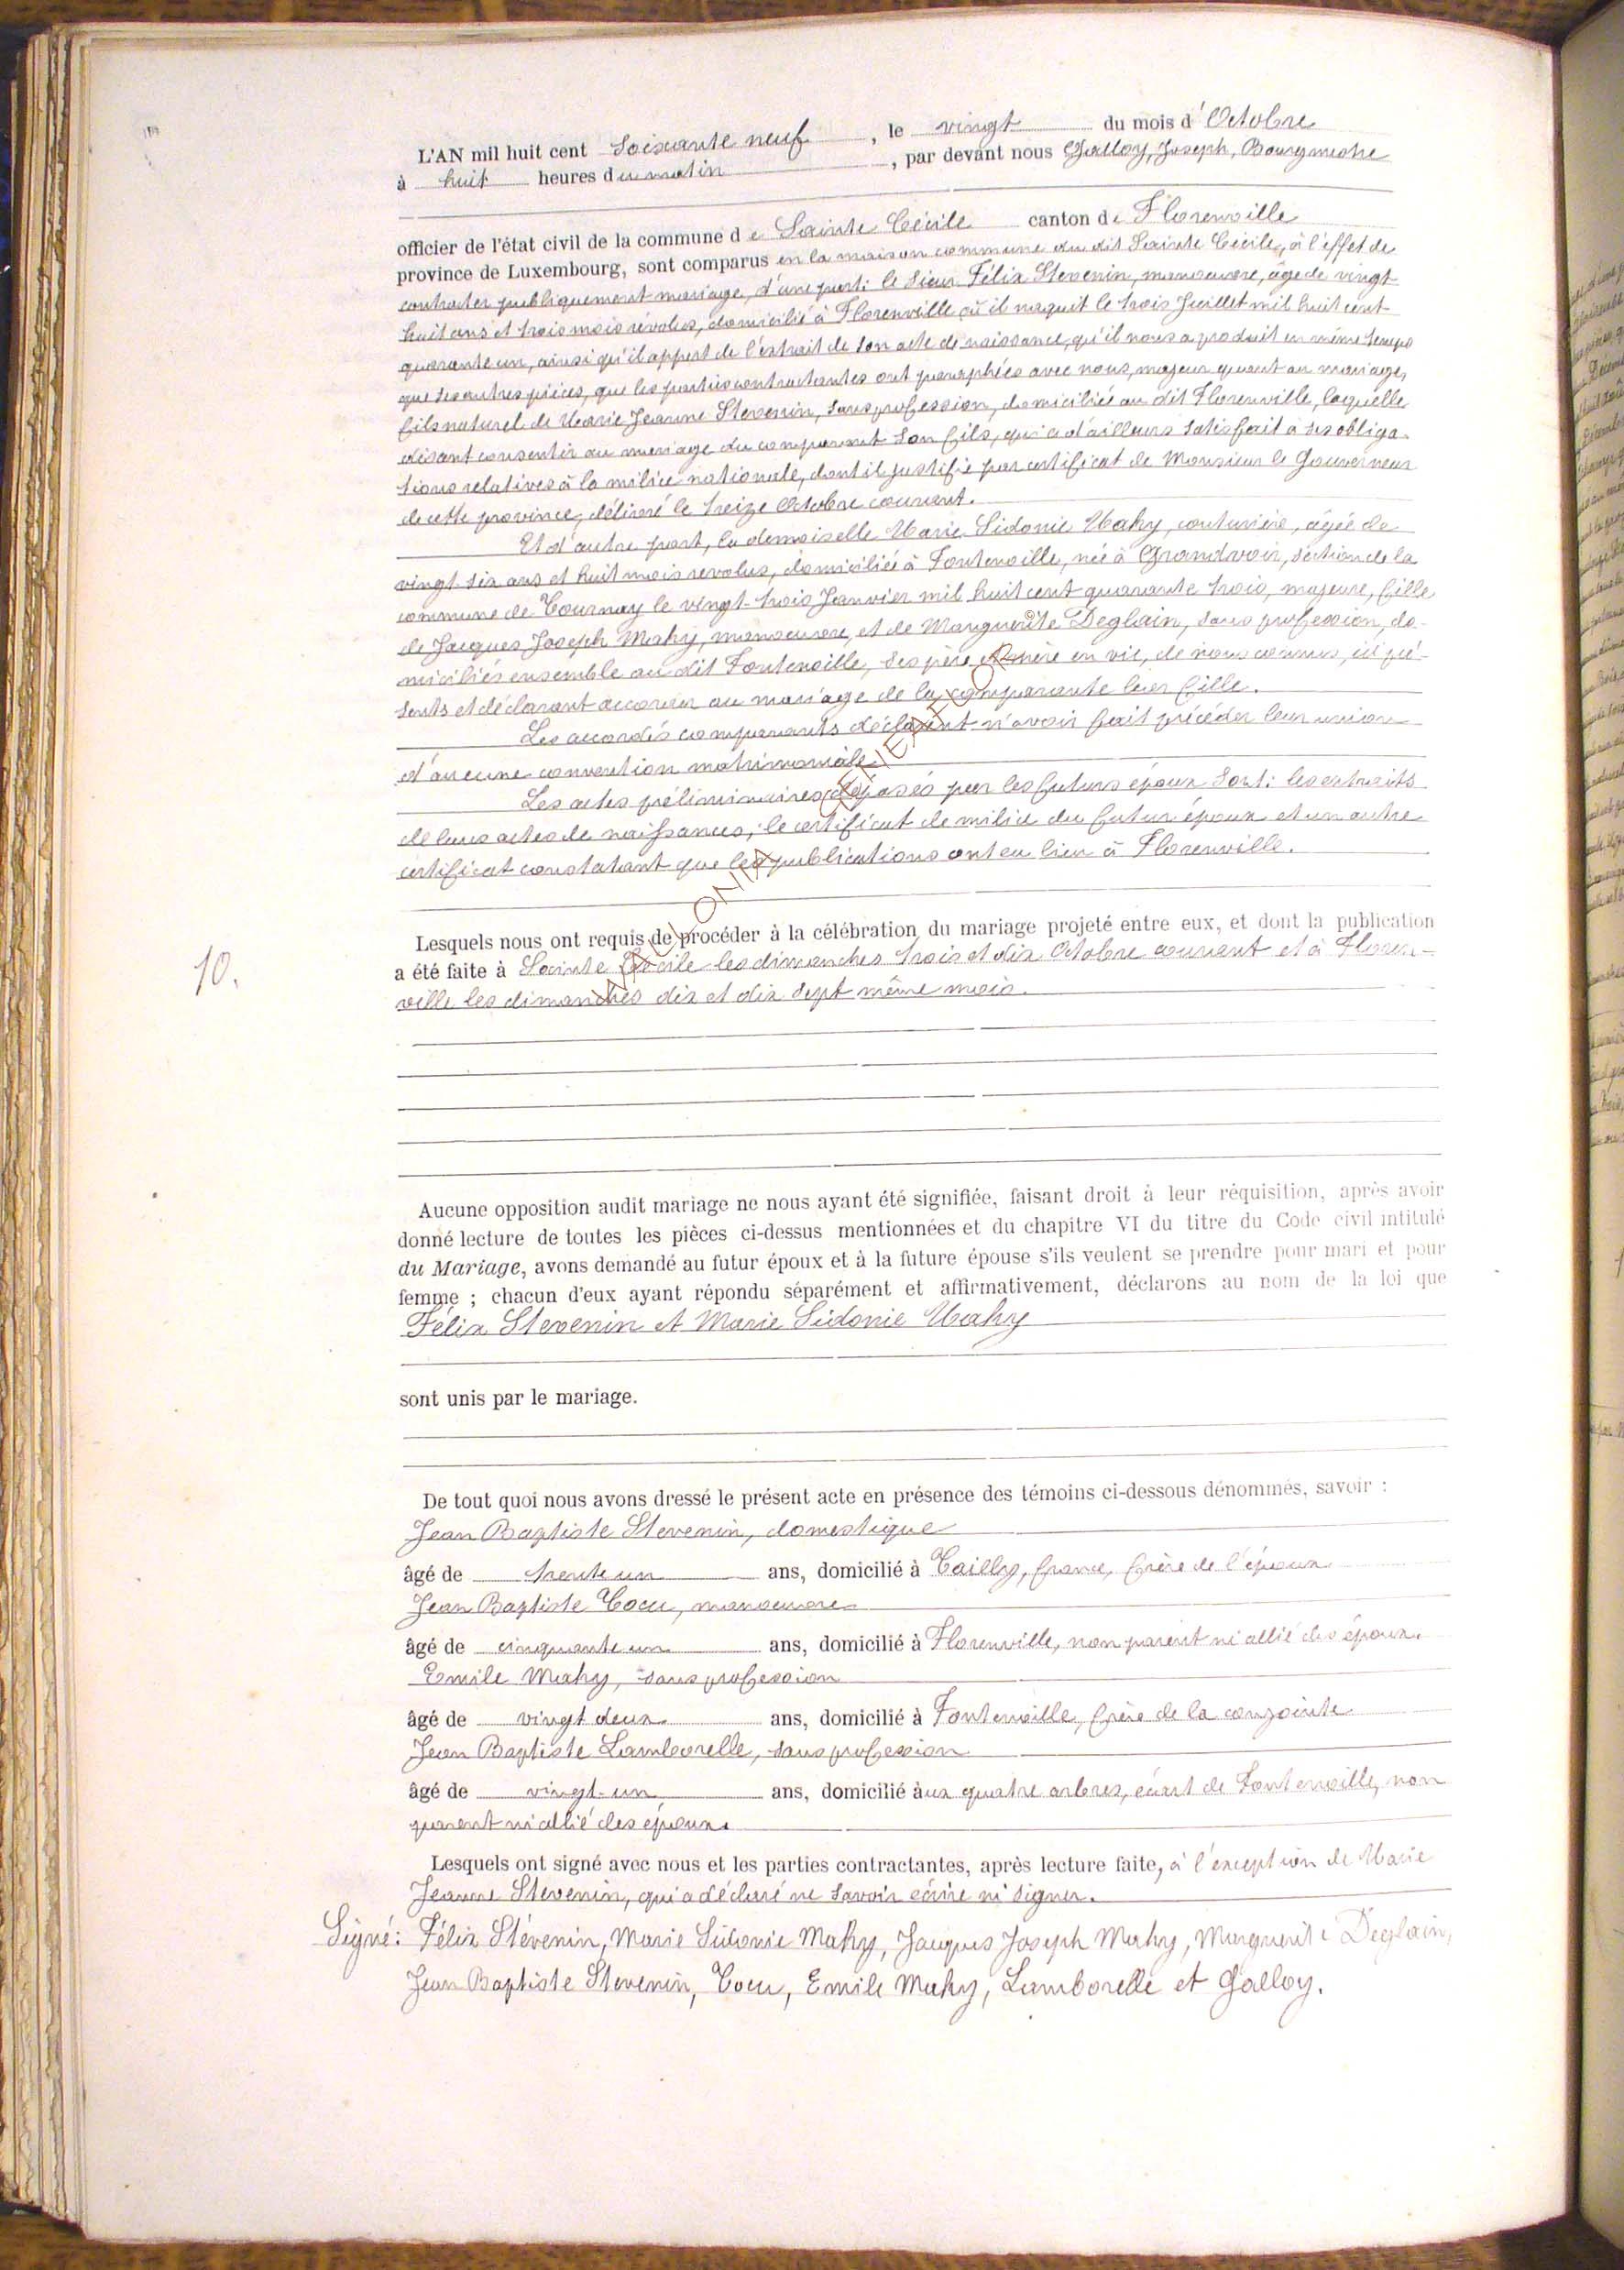 L'AN mil huit cent soixante neuf, le vingt du mois d'Octobre
à huit heures du matin, par devant nous Galloy, Joseph, Bourgmestre
officier de l'état civil de la commune de Sainte Cécile canton de Florenville
province de Luxembourg, sont comparus en la maison commune du dit Sainte Cécile, à l'effet de
contracter publiquement mariage, d'une part: le sieur Félix Stevenin, manoeuvre, âgé de vingt
huit ans et trois mois révolus, domicilié à Florenville où il naquit le trois Juillet mil huit cent
quarante un, ainsi qu'il appert de l'extrait de son acte de naissance, qu'il nous a produit en même temps
que ses autres pièces, que les parties contractantes ont paraphées avec nous, majeur quant au mariage,
fils naturel de Marie Jeanne Stevenin, sans profession, domiciliée au dit Florenville, laquelle
disant consentir au mariage du comparant son fils, qui a d'ailleurs satisfait à ses obliga-
tions relatives à la milice nationale, dont il justifie par certificat de Monsieur le Gouverneur
de cette province, délivré le treize Octobre courant.
Et d'autre part, la demoiselle Marie Sidonie Mahy, couturière, âgée de
vingt six ans et huit mois revolus, domiciliée à Fontenoille, née à Grandvoir, section de la
commune de Tournay le vingt-trois Janvier mil huit cent quarante trois, majeure, fille
de Jacques Joseph Mahy, manoeuvre, et de Marguerite Deglain, sans profession, do-
miciliés ensemble au dit Fontenoille, ses père et mère en vie, de nous connus, ici pré-
sents et déclarant accorder au mariage de la comparante leur fille.
Les accordés comparants déclarent n'avoir fait précéder leur union
d'aucune convention matrimoniale.
Les actes préliminaires déposés par les futurs époux sont: les extraits
de leurs actes de naissances; le certificat de milice du futur époux et un autre
certificat constatant que les publications ont eu lieu à Florenville.
Lesquels nous ont requis de procéder à la célébration du mariage projeté entre eux, et dont la publication
10. a été faite à Sainte Cécile les dimanches trois et dix Octobre courant et à Floren-
ville les dimanches dix et dix sept même mois.
Aucune opposition audit mariage ne nous ayant été signifiée, faisant droit à leur réquisition, après avoir
donné lecture de toutes les pièces ci-dessus mentionnées et du chapitre VI du titre du Code civil intitulé
du Mariage, avons demandé au futur époux et à la future épouse s'ils veulent se prendre pour mari et pour
femme ; chacun d'eux ayant répondu séparément et affirmativement, déclarons au nom de la loi que
Félix Stevenin et Marie Sidonie Mahy
sont unis par le mariage.
De tout quoi nous avons dressé le présent acte en présence des témoins ci-dessous dénommés, savoir :
Jean Baptiste Stevenin, domestique
âgé de trente un ans, domicilié à Tailly, france, frère de l'époux
Jean Baptiste Cocu, manoeuvre
âgé de cinquante un ans, domicilié à Florenville, non parent ni allié des époux.
Emile Mahy, sans profession
âgé de vingt deux ans, domicilié à Fontenoille, frère de la conjointe
Jean Baptiste Lamborelle, sans profession
âgé de vingt-un ans, domicilié aux quatre arbres, écart de Fontenoille, non
parent ni allié des époux.
Lesquels ont signé avec nous et les parties contractantes, après lecture faite, à l'exception de Marie
Jeanne Stevenin, qui a déclaré ne savoir écrire ni signer.
Signé: Félix Stévenin, Marie Sidonie Mahy, Jacques Joseph Mahy, Marguerite Deglain,
Jean Baptiste Stevenin, Cocu, Emile Mahy, Lamborelle et Galloy.